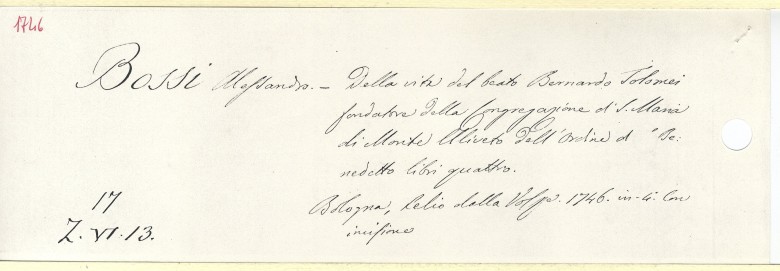 1746
Bossi Alessandro. - Della vita del beato Bernardo Tolomei
fondatore della Congregazione di S. Maria
di Monte Uliveto dell'Ordine d Be:
nedetto libri quattro.
17
Bologna, Lelio dalla Volpe. 1746. in-4. Con
Z. VI. 13.
incisione